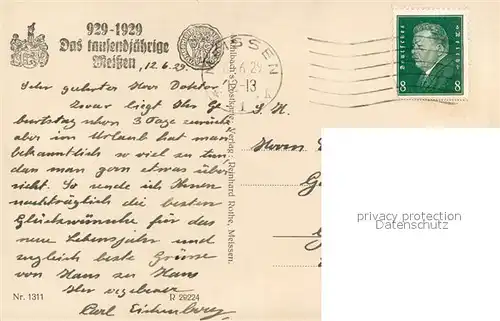 929-1929
Das tausendjährige
Meißen
MEISSEN
12.6.29.
Sehr geehrter Herr Doktor!
Zwar liegt Ihr Ge-
burtstag schon 3 Tage zurück
aber im Urlaub hat man
bekanntlich so viel zu tun,
dan man gern etwas über
sieht. So sende ich Ihnen
nachträglich die besten
Glückwünsche für das
neue Lebensjahr und
zugleich beste Grüsse
von Haus zu Haus
Ihr ergebener
Carl
Nr. 1311
R 29224
Postkarten-Verlag: Reinhard Rothe, Meissen.
S. H.
Herrn
Deutsches Reich
8 8
privacy protection
Datenschutz